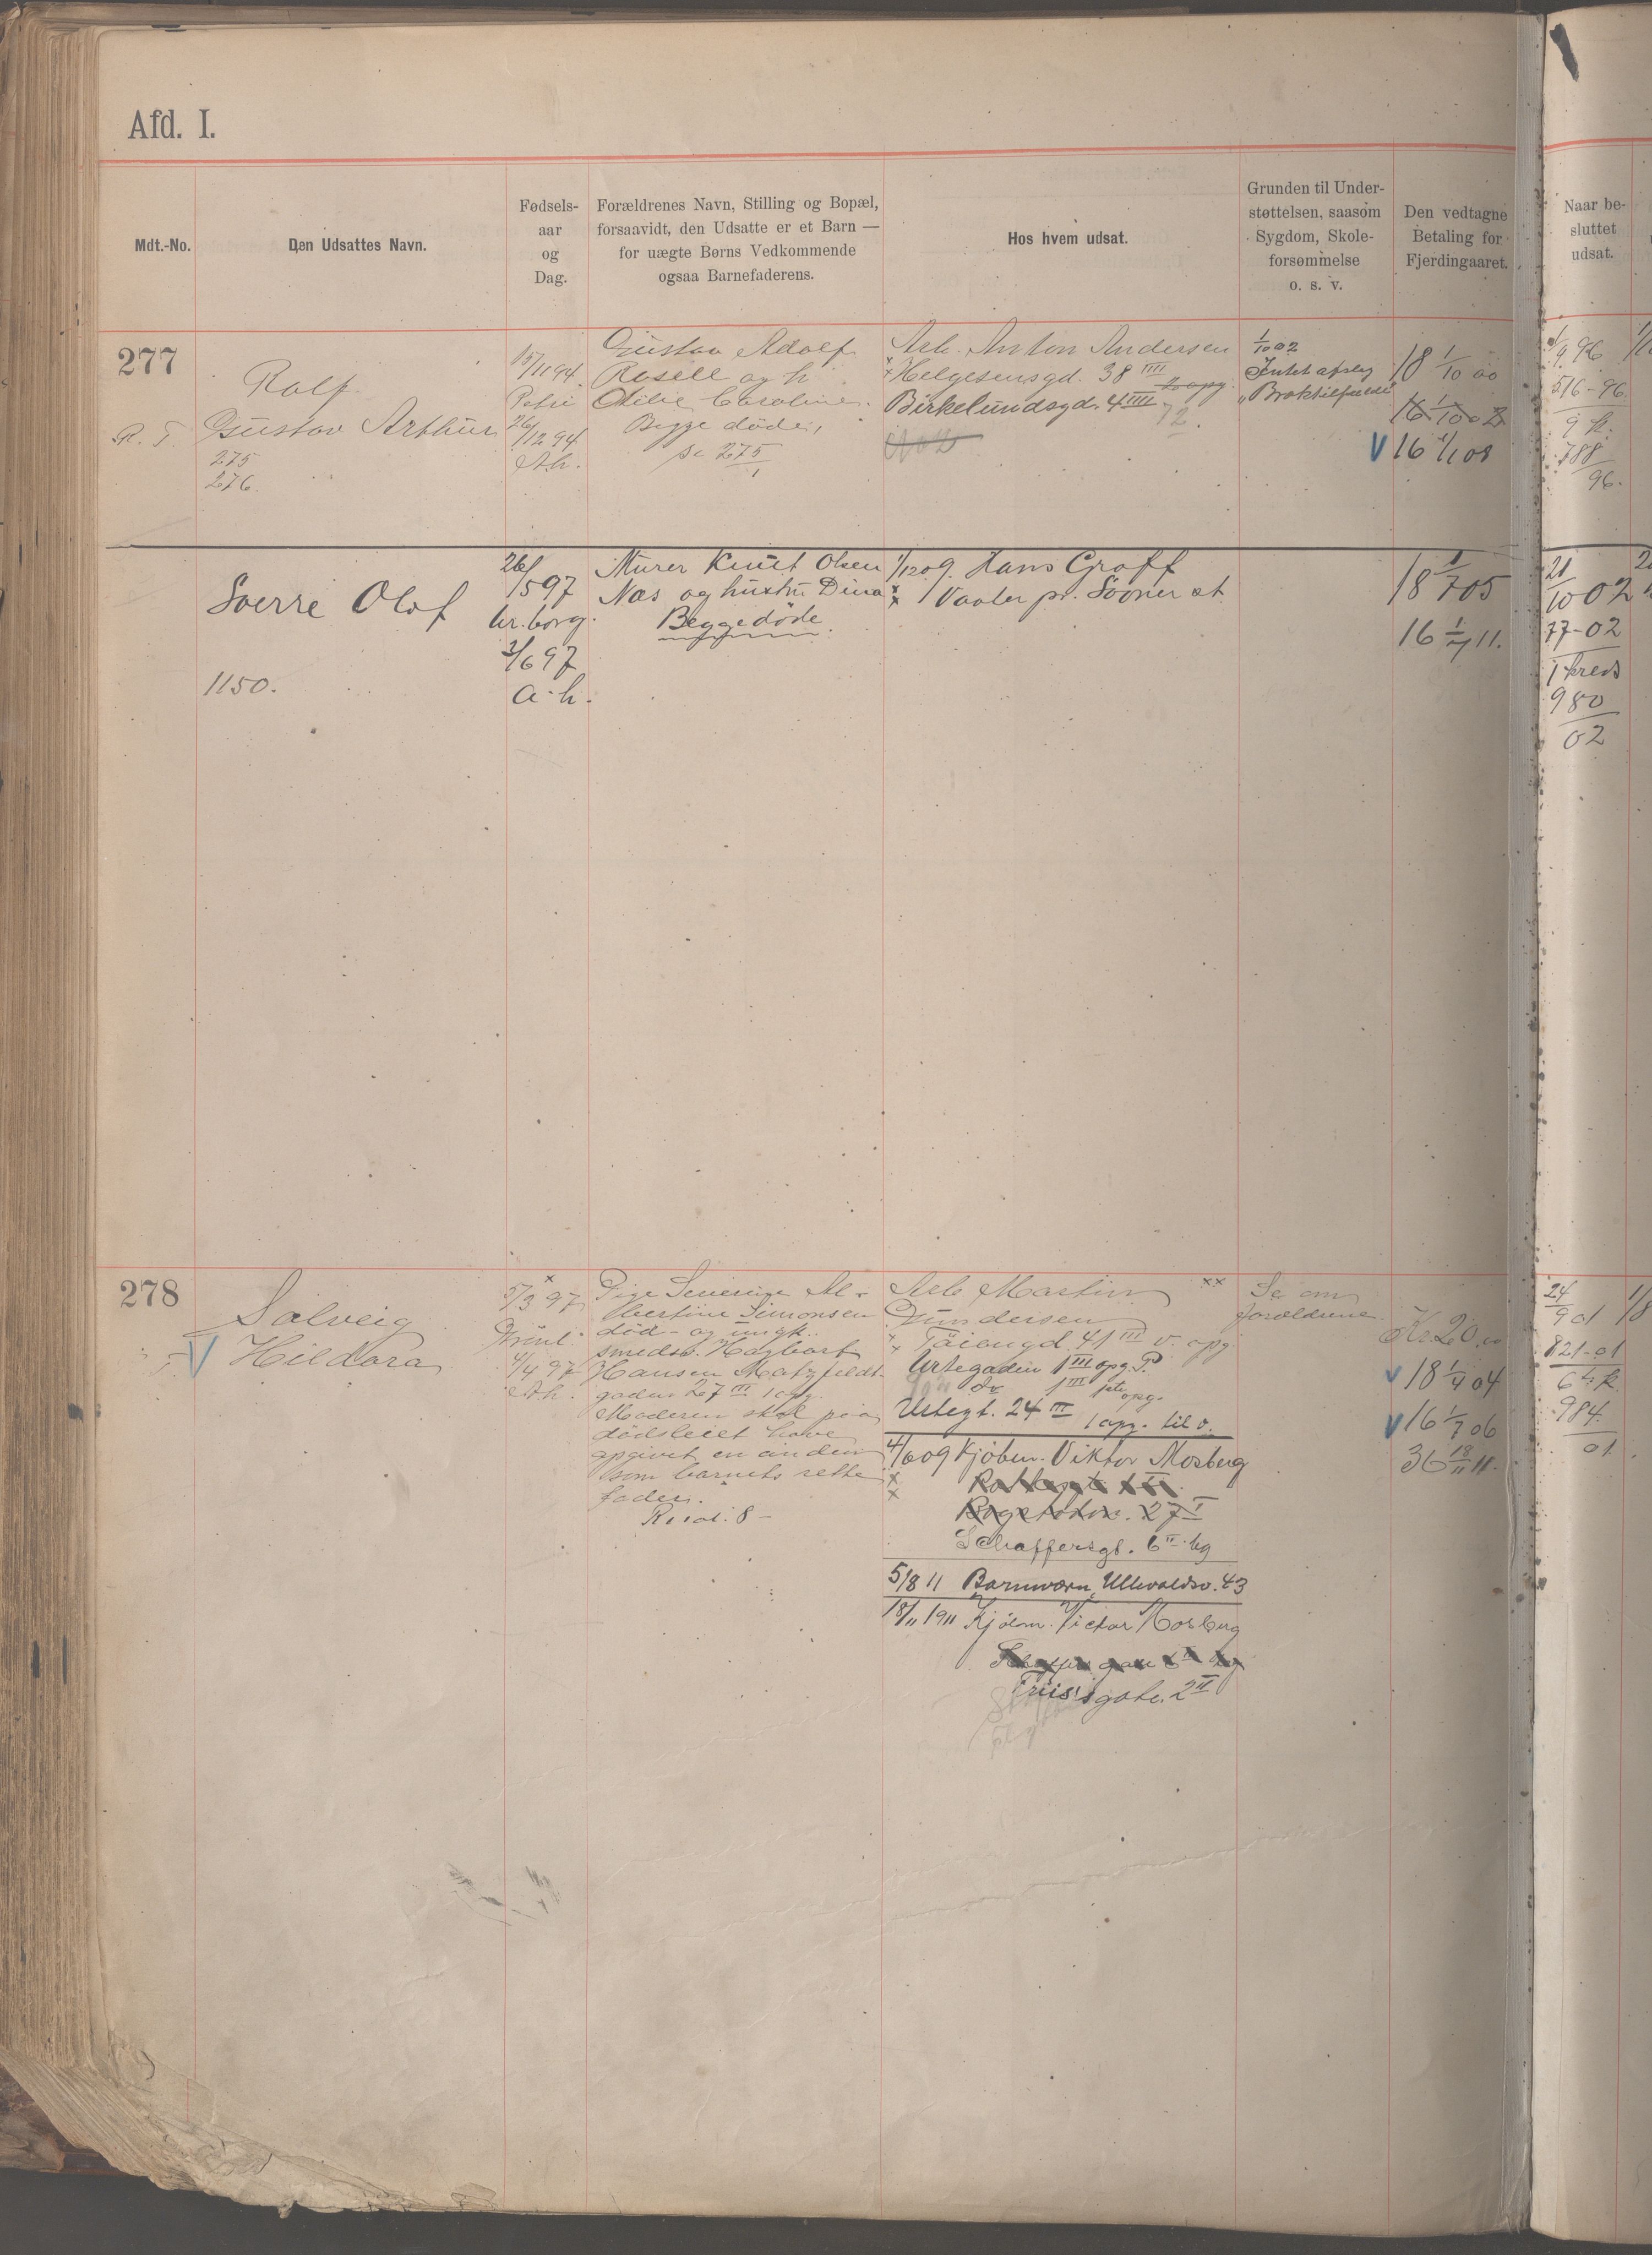 Afd. I.
Mdt.-No.
Den Udsattes Navn.
Fødsels-
aar
og
Dag.
Forældrenes Navn, Stilling og Bopæl,
forsaavidt, den Udsatte er et Barn —
for uægte Børns Vedkommende
ogsaa Barnefaderens.
Hos hvem udsat.
Grunden til Under-
støttelsen, saasom
Sygdom, Skole-
forsømmelse
o. s. v.
Den vedtagne
Betaling for
Fjerdingaaret.
Naar be-
sluttet
udsat.
277
Rolf
Gustav Arthur
R. T.
275
276.
15/11 94.
Petri
26/12 94
A.h.
Gustav Adolf
Rosell og h
Otilie Caroline.
Begge døde,
se 275
Arb. Anton Andersen
Helgesensgd. 38 IIII
Birkelundsgd. 4 IIII
12.
1/10 02
Intet afslag
18 1/10 00
16 1/10 02
V 16 1/1 08
1/9 96
516-96
9 k.
788
96.
Sverre Olof
1150.
26/5 97
ur.borg.
3/6 97
a.h.
Murer Knut Olsen
Næs og hustru Dina
Begge døde.
1/12 09. Hans Graff
Vaaler pr. Sooner st
18 1/7 05
16 1/7 11.
21/10 02
77-02
1 kreds
980
02
278
Solveig
V Hildora
5/3 97
Grønl.
4/4 97
A.h.
Pige Severine Al-
bertine Simonsen
død - og ungk.
smedsv. Hagbart
Hansen Motzfeldt-
gaden 27 III 1 opg.
Moderen skal paa
dødsleiet have
opgivet en anden
som barnets rette
fader.
Arb Martin
Gundersen
Tøiengd. 41 III v. opg.
Urtegaden 1 III opg. P.
do 1 III
opg.
Urtegt. 24 III
1 opg. til v.
4/6 09 Kjøbm. Viktor Mosberg
27 I
Schaffersgt. 6 II. hg
5/8 11 Barnværn, Ullevoldsv. 43
18/11 1911 Kjøbm. Victor Mosberg
Friisgate. 2 II
Se om
forældrene
Kr. 20.00
V 18 1/4 04
V 16 1/7 06
36 18/11 11.
24/9 01
821-01
6 k.
984.
01.